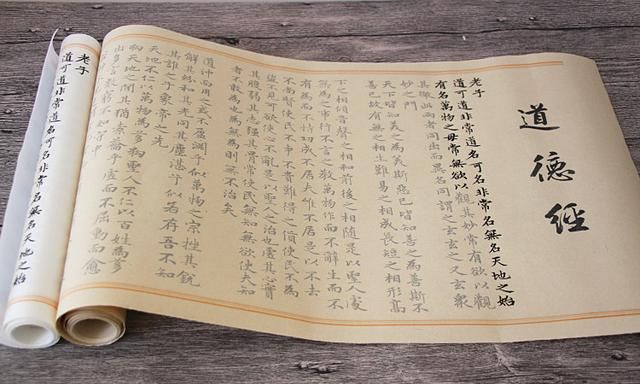 道德經
老子
道可道非常道名可名非常名無名天地之始
有名萬物之母常無欲以觀其妙常有欲以觀
其徼此兩者同出而異名同謂之玄玄之又玄眾
妙之門
天下皆知美之為美斯惡已皆知善之為善斯不
善已故有無之相生難易之相成長短之相形高
下之相傾音聲之相和前後之相隨是以聖人處
無為之事行不言之教萬物作而不辭生而不
有為而不恃功成不居夫唯不居是以不去
不尚賢使民不爭不貴難得之貨使民不為
盜不見可欲使心不亂是以聖人之治也虛其心實
其腹弱其志強其骨常使民無知無欲使夫知
者不敢為也為無為則無不治矣
道沖而用之或不盈淵乎似萬物之宗挫其銳
解其紛和其光同其塵湛兮似若存吾不知
其誰之子象帝之先
天地不仁以萬物為芻狗聖人不仁以百姓為芻
狗天地之間其猶橐籥乎虛而不屈動而愈
出多言數窮不如守中
老子
道可道非常道名可名非常名無名天地之始